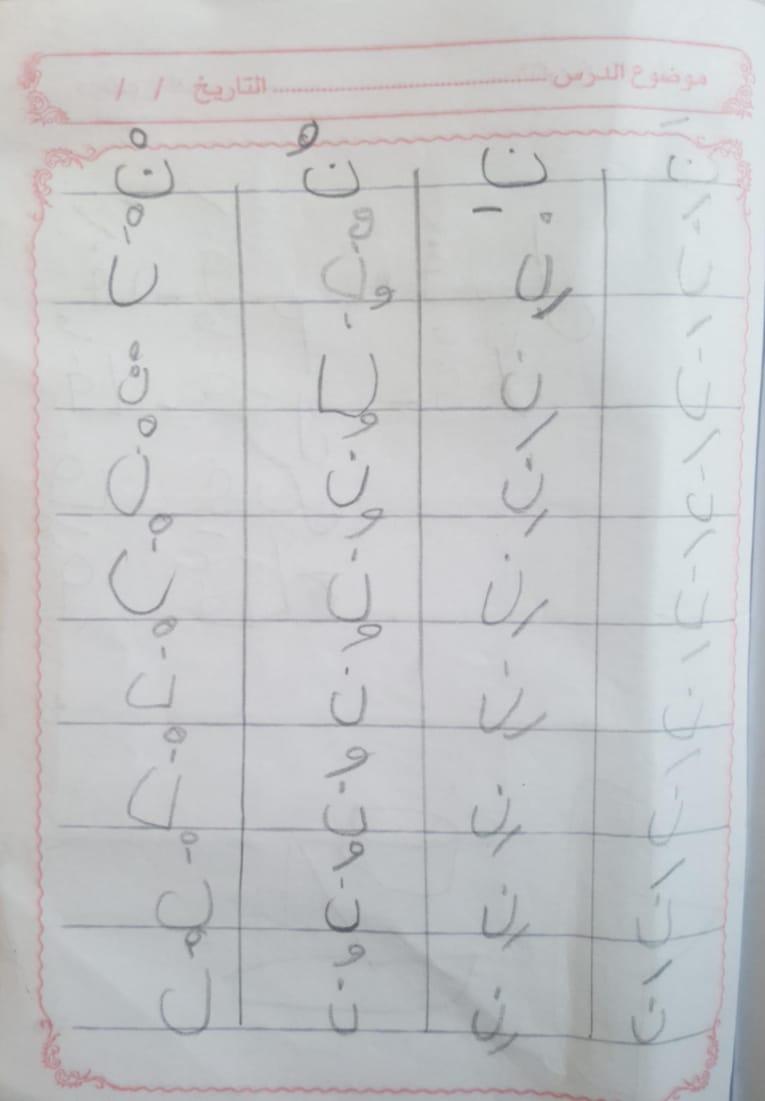 موضوع الدرس ........................ التاريخ / /
نَ نِ نُ نْ
نَ نِ نُ نْ
نَ نِ نُ نْ
نَ نِ نُ نْ
نَ نِ نُ نْ
نَ نِ نُ نْ
نَ نِ نُ نْ
نَ نِ نُ نْ
نَ نِ نُ نْ